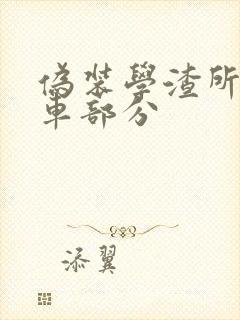 偽裝學渣所
車部分
添翼